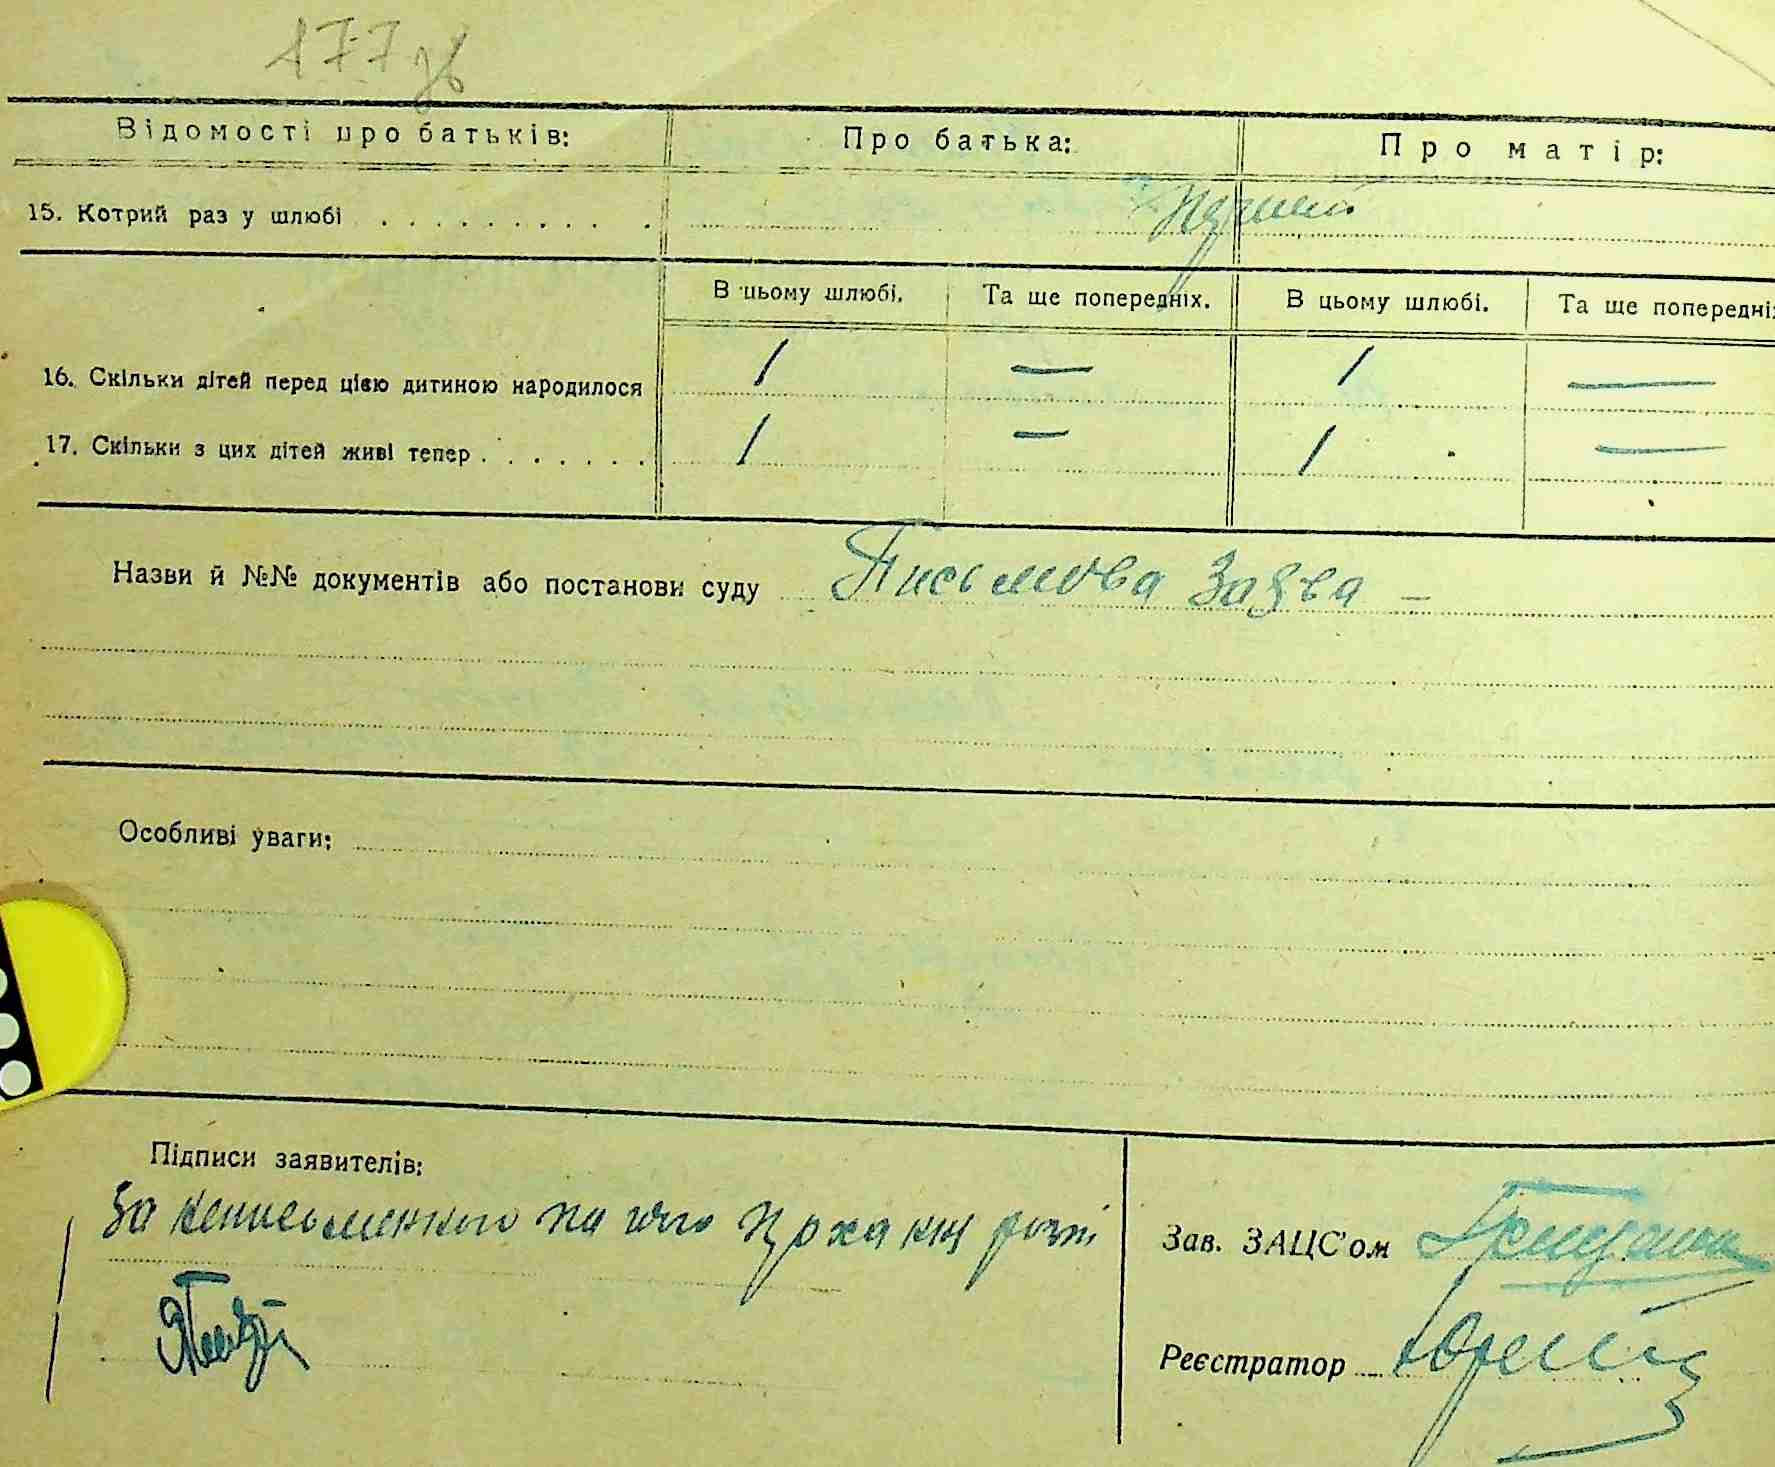 177 зв
Відомості про батьків: Про батька: Про матір:
15. Котрий раз у шлюбі . . . . . . . . . . Перший
В цьому шлюбі. Та ще попередніх. В цьому шлюбі. Та ще попередніх
16. Скільки дітей перед цією дитиною народилося 1 — 1 —
17. Скільки з цих дітей живі тепер . . . . . . . 1 — 1 —
Назви й №№ документів або постанови суду Письмова Заява —
Особливі уваги:
Підписи заявителів:
За неписьменного на його прохання
Зав. ЗАЦС'ом
Реєстратор